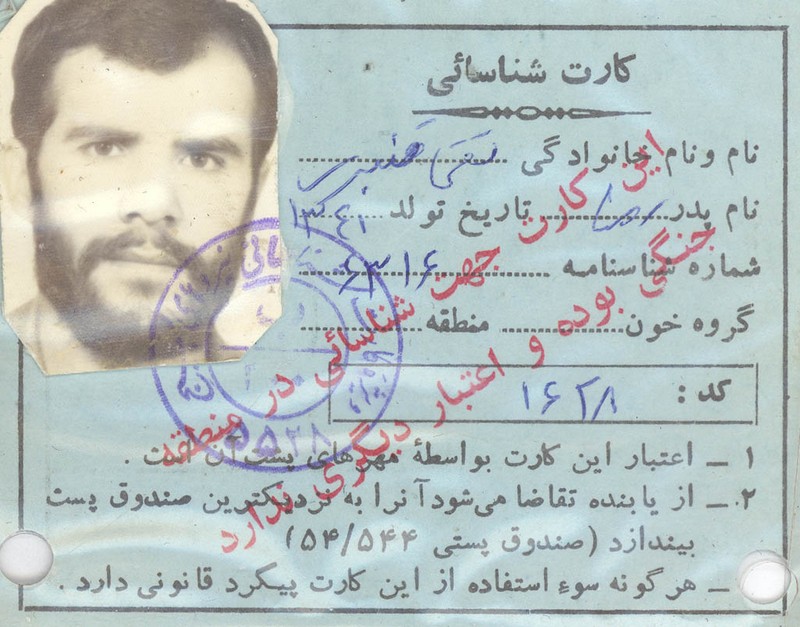 کارت شناسائی
نام و نام خانوادگی
نام پدر رضا تاریخ تولد ۱۳۴۱
شماره شناسنامه ۶۳۱۶
گروه خون منطقه
کد : ۱۶۲۸
۱ ـ اعتبار این کارت بواسطهٔ مهرهای پشت آن است .
۲ ـ از یابنده تقاضا می‌شود آنرا به نزدیکترین صندوق پست
بیندازد (صندوق پستی ۵۴/۵۴۴)
ـ هرگونه سوء استفاده از این کارت پیگرد قانونی دارد .
این کارت جهت شناسائی در منطقه
جنگی بوده و اعتبار دیگری ندارد